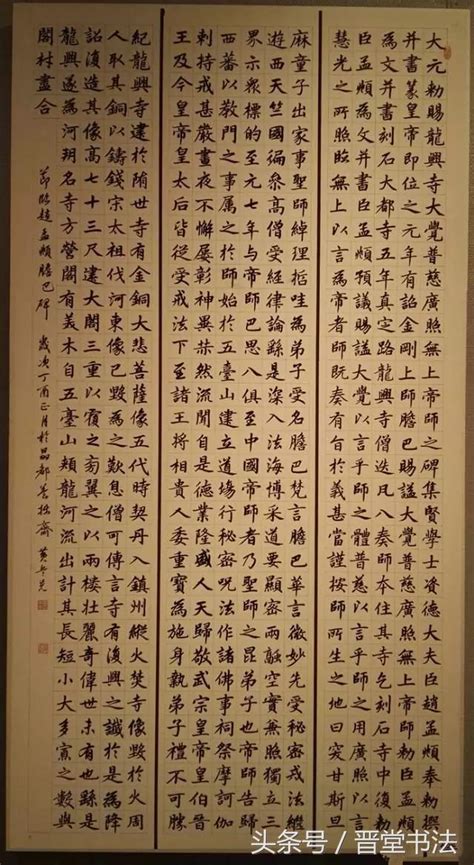 大元勅賜龍興寺大覺普慈廣照無上帝師之碑集賢學士資德大夫臣趙孟頫奉勅撰
并書篆皇帝即位之元年有詔金剛上師膽巴賜謚大覺普慈廣照無上帝師勅臣孟頫
為文并書刻石大都寺五年真定路龍興寺僧迭凡八奏師本住其寺乞刻石寺中復勅
臣孟頫為文并書臣孟頫預議賜謚大覺以言乎師之體普慈以言乎師之用廣照以言
慧光之所照臨無上以言為帝者師既奏有旨於義甚當謹按師所生之地曰突甘斯旦
麻童子出家事聖師綽理哲哇為弟子受名膽巴梵言膽巴華言微妙先受秘密戒法繼
遊西天竺國徧參高僧受經律論繇是深入法海博采道要顯密兩融空實兼照獨立三
界示衆標的至元七年与帝師巴思八俱至中國帝師者乃聖師之昆弟也帝師告歸
西蕃以教門之事属之於師始於五臺山建立道場行秘密呪法作諸佛事祠祭摩訶伽
剌持戒甚嚴晝夜不懈屢彰神異赫然流聞自是德業隆盛人天歸敬武宗皇帝皇伯晉
王及今皇帝皇太后皆從受戒法下至諸王將相貴人委重寶為施身執弟子禮不可勝
紀龍興寺建於隋世寺有金銅大悲菩薩像五代時契丹入鎮州縱火焚寺像毀於火周
人取其銅以鑄錢宋太祖伐河東像已毀為之歎息僧可傳言寺有復興之讖於是為降
詔復造其像高七十三尺建大閣三重以覆之旁翼之以兩樓壯麗奇偉世未有也繇是
龍興遂為河朔名寺方營閣有美木自五臺山頰龍河流出計其長短小大多寡之數與
閣材盡合
節臨趙孟頫膽巴碑 歲次丁酉正月於品都養拙齋
头条号 / 晋堂书法